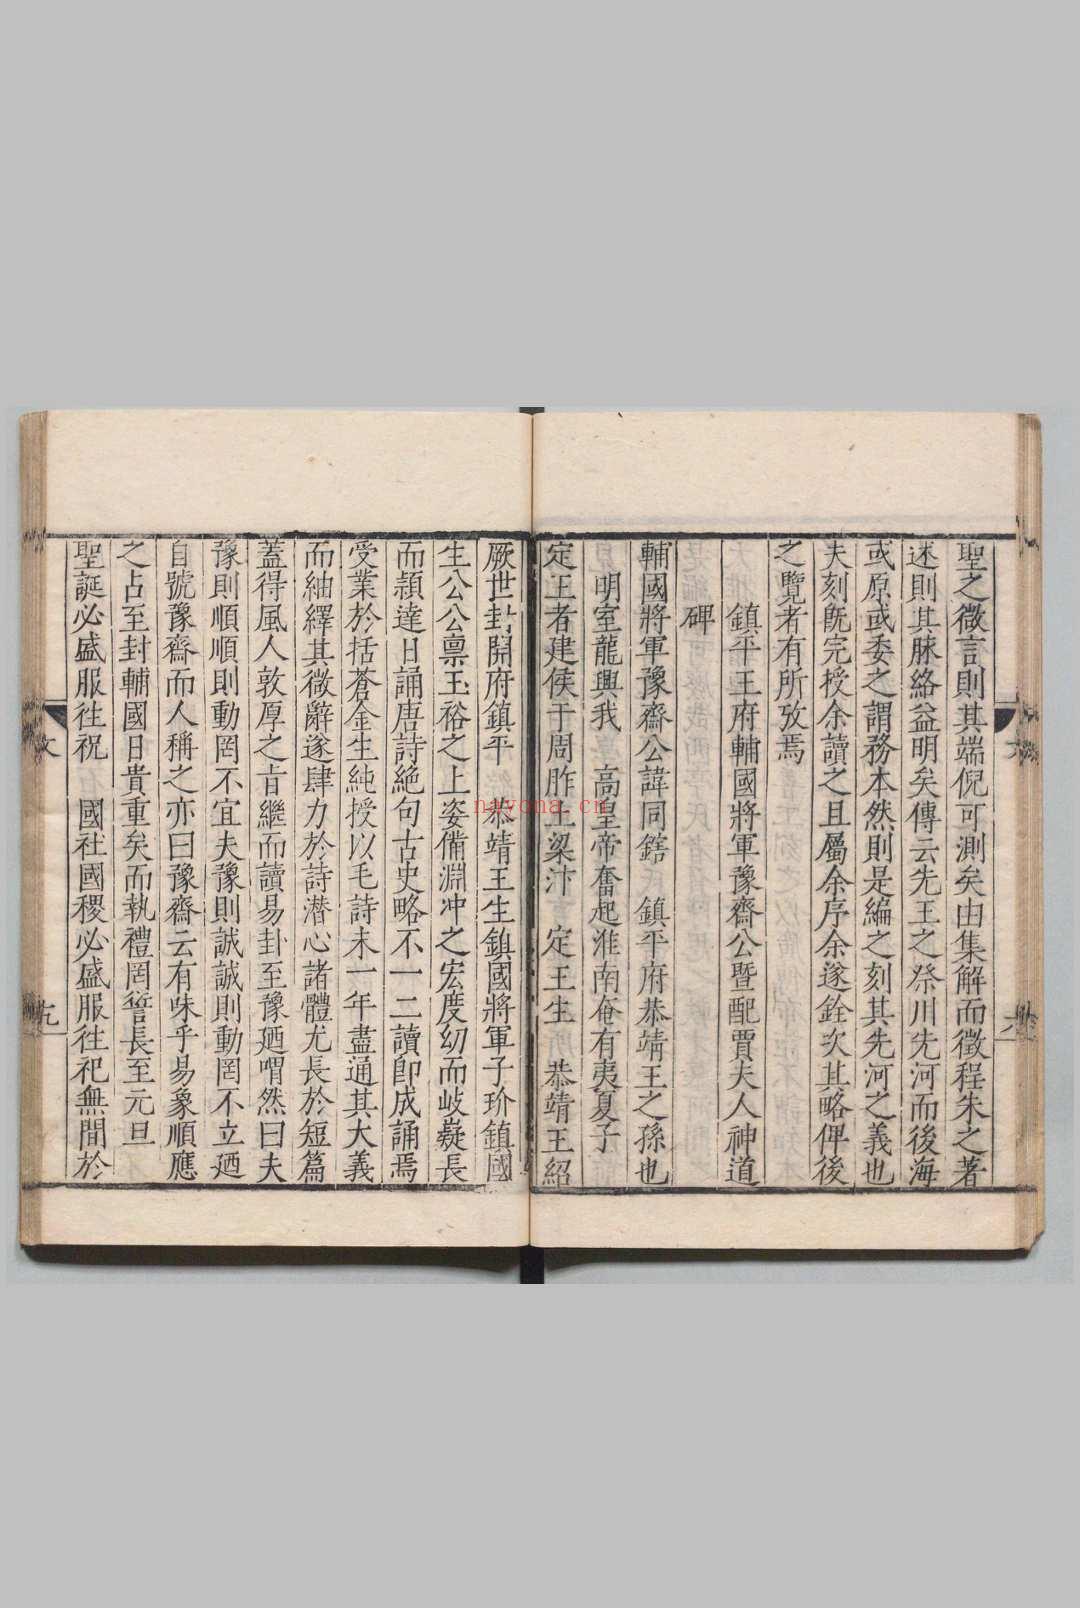 聖之微言則其端倪可測矣由集解而徵程朱之著
述則其脉絡益明矣傳云先王之祭川先河而後海
或原或委之謂務本然則是編之刻其先河之義也
夫刻旣完授余讀之且屬余序余遂銓次其略俾後
之覽者有所攷焉
鎮平王府輔國將軍豫齋公暨配賈夫人神道
碑
輔國將軍豫齋公諱同鎋 鎮平府恭靖王之孫也
明室龍興我 高皇帝奮起淮南奄有夷夏子
定王者建侯于周胙土梁汴 定王生 恭靖王紹
厥世封開府鎮平 恭靖王生鎮國將軍子玠鎮國
生公公禀玉裕之上姿備淵冲之宏度幼而岐嶷長
而頴達日誦唐詩絕句古史略不一二讀卽成誦焉
受業於括蒼金生純授以毛詩未一年盡通其大義
而紬繹其微辭遂肆力於詩潜心諸體尤長於短篇
蓋得風人敦厚之旨繼而讀易卦至豫廼喟然曰夫
豫則順順則動罔不宜夫豫則誠誠則動罔不立廼
自號豫齋而人稱之亦曰豫齋云有味乎易象順應
之占至封輔國日貴重矣而執禮罔諐長至元旦
聖誕必盛服徃祝 國社國稷必盛服徃祀無間於
文
九
nayona.cn